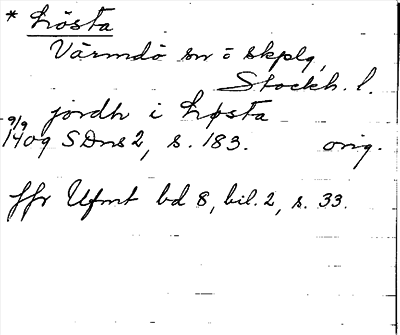 * Lösta
Värmdö sn o skplg,
Stockh. l.
jordh i Løsta
9/9
1409 SDns 2, s. 183. orig.
jfr Ufmt bd 8, bil. 2, s. 33.